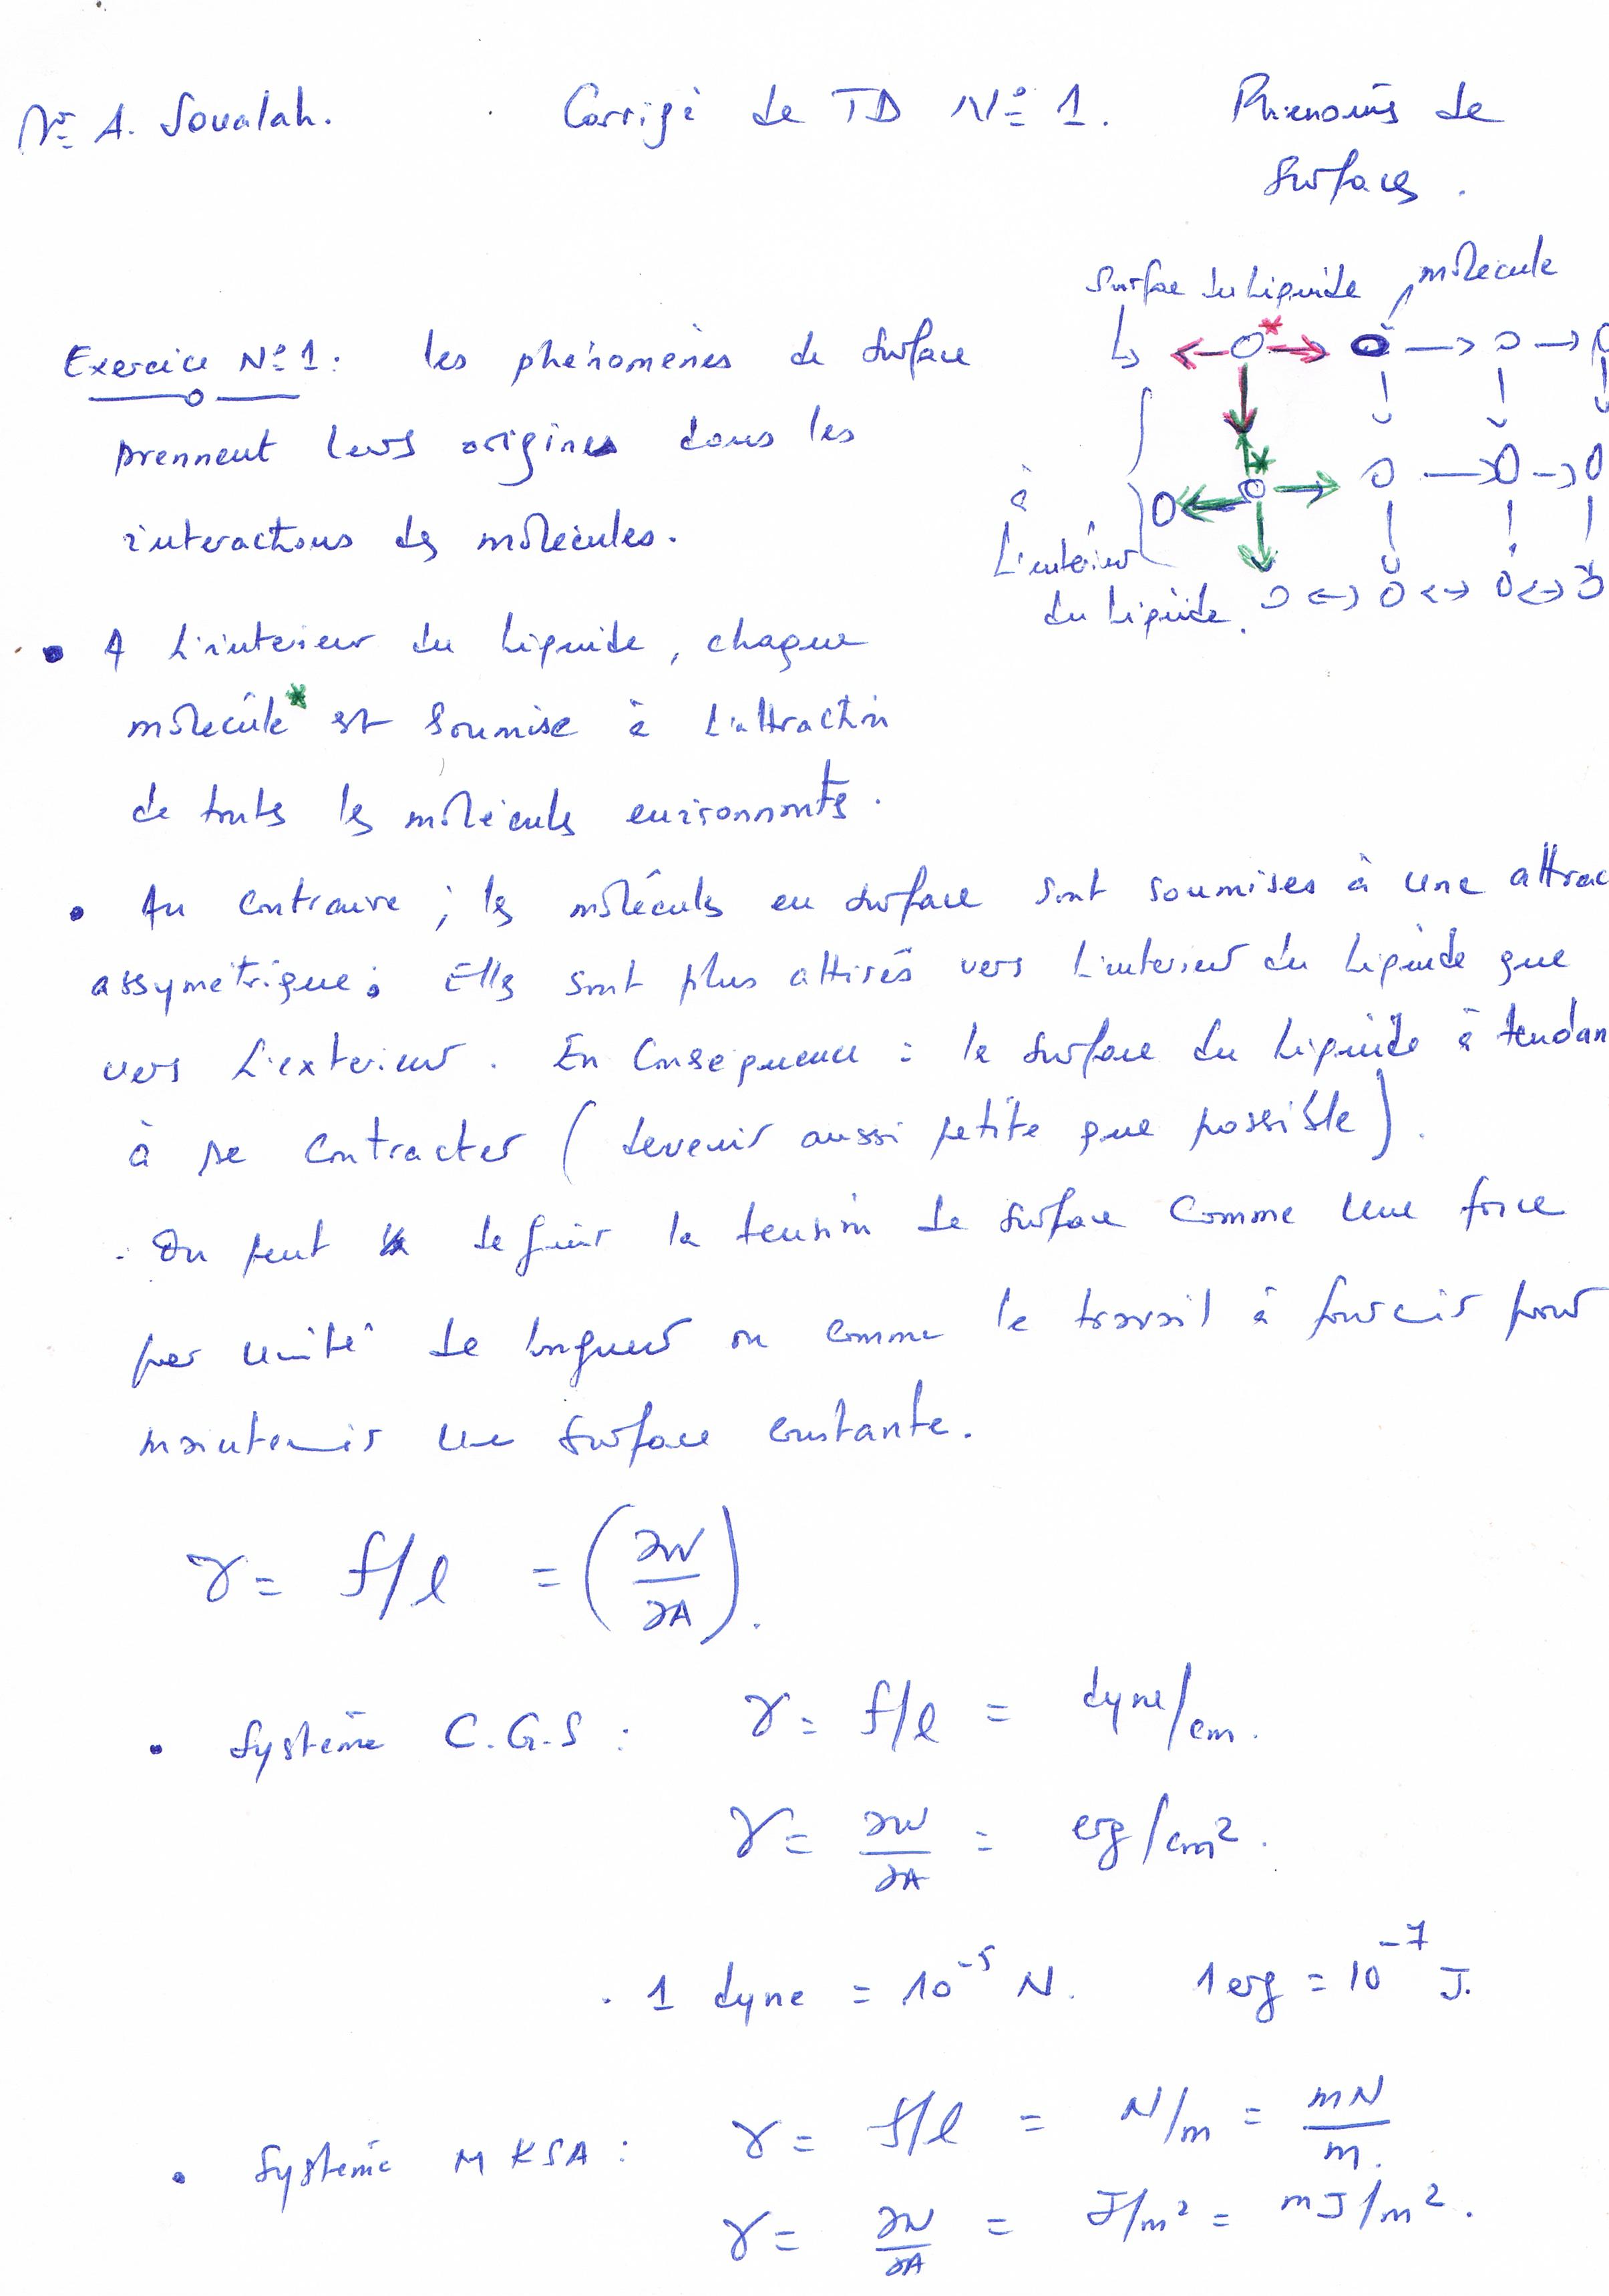 Mr A. Soualah. Corrigé de TD N° 1. Phénomès de
Surfaces.
Surface du liquide molécule
Exercice N° 1 : les phénomènes de surface
prennent leurs origines dans les
interactions des molécules.
à
L'intérieur
du liquide.
• A L'interieur du liquide, chaque
molécule* est soumise à L'attraction
de toutes les molécules environnantes.
• Au contraire ; les molécules en surface sont soumises à une attrac
assymétrique; Elles sont plus attirés vers L'interieur du liquide que
vers L'exterieur. En Consequence : la surface du liquide à tendan
à se contracter (devenir aussi petite que possible).
. On peut definir la tension de surface comme une force
par unité de longueur ou comme le travail à fournir pour
maintenir une surface constante.
γ = f/l = (∂W/∂A).
• Système C.G.S : γ = f/l = dyne/cm.
γ = ∂W/∂A = erg/cm².
. 1 dyne = 10⁻⁵ N. 1 erg = 10⁻⁷ J.
• Système MKSA : γ = f/l = N/m = mN/m.
γ = ∂W/∂A = J/m² = mJ/m².